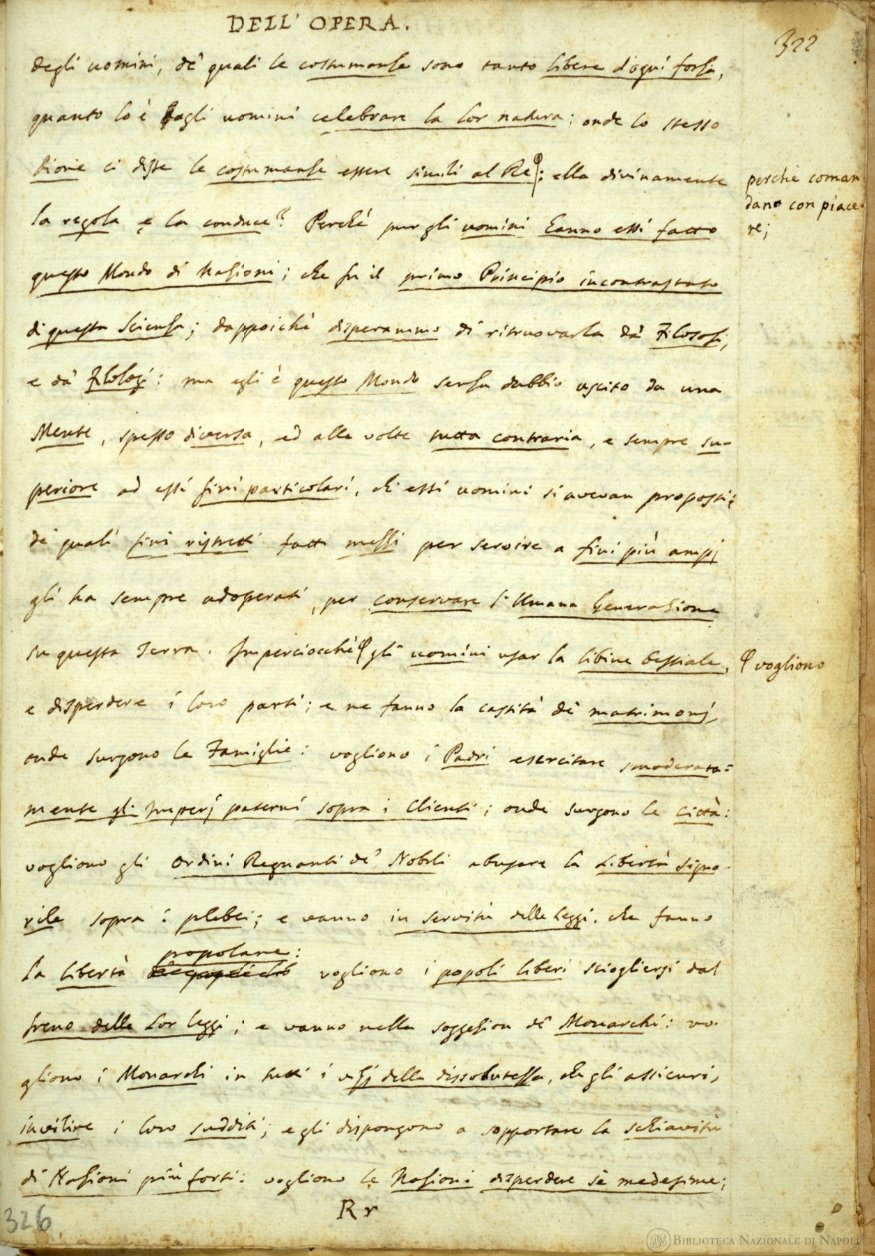 DELL' OPERA.
322
degli uomini, de' quali le costumanze sono tanto libere d'ogni forza,
quanto lo è agli uomini celebrare la lor natura; onde lo stesso
Dione ci disse le costumanze essere simili al Re φ: ella divinamente
perchè coman
dano con piace
re;
la regola e la conduce? Perchè pur gli uomini hanno essi fatto
questo Mondo di Nazioni; che fu il primo Principio incontrastato
di questa Scienza; dappoichè disperammo di ritruovarla da' Filosofi,
e da' Filologi: ma egli è questo Mondo senza dubbio uscito da una
Mente, spesso diversa, ed alle volte tutta contraria, e sempre su-
periore ad essi fini particolari, ch'essi uomini si avevan proposti:
de' quali fini ristretti fatti mezzi per servire a fini più ampj
gli ha sempre adoperati, per conservare l'Umana Generazione
in questa Terra. Imperciocchè φ gli uomini usar la libine bestiale,
φ vogliono
e disperdere i loro parti; e ne fanno la castità de' matrimonj,
onde surgono le Famiglie: vogliono i Padri esercitare smoderata=
mente gl'Imperj paterni sopra i Clienti; onde surgono le Città:
vogliono gli Ordini Regnanti de' Nobili abusare la Libertà signo-
rile sopra i plebei; e vanno in servitù delle Leggi, che fanno
la libertà popolare:
vogliono i popoli liberi sciogliersi dal
freno delle lor leggi; e vanno nella soggezion de' Monarchi: vo-
gliono i Monarchi in tutti i vizj della dissolutezza, che gli assicuri,
invilire i loro sudditi; e gli dispongono a sopportare la schiavitù
di Nazioni più forti: vogliono le Nazioni disperdere sè medesime;
Rr
326
BIBLIOTECA NAZIONALE DI NAPOLI